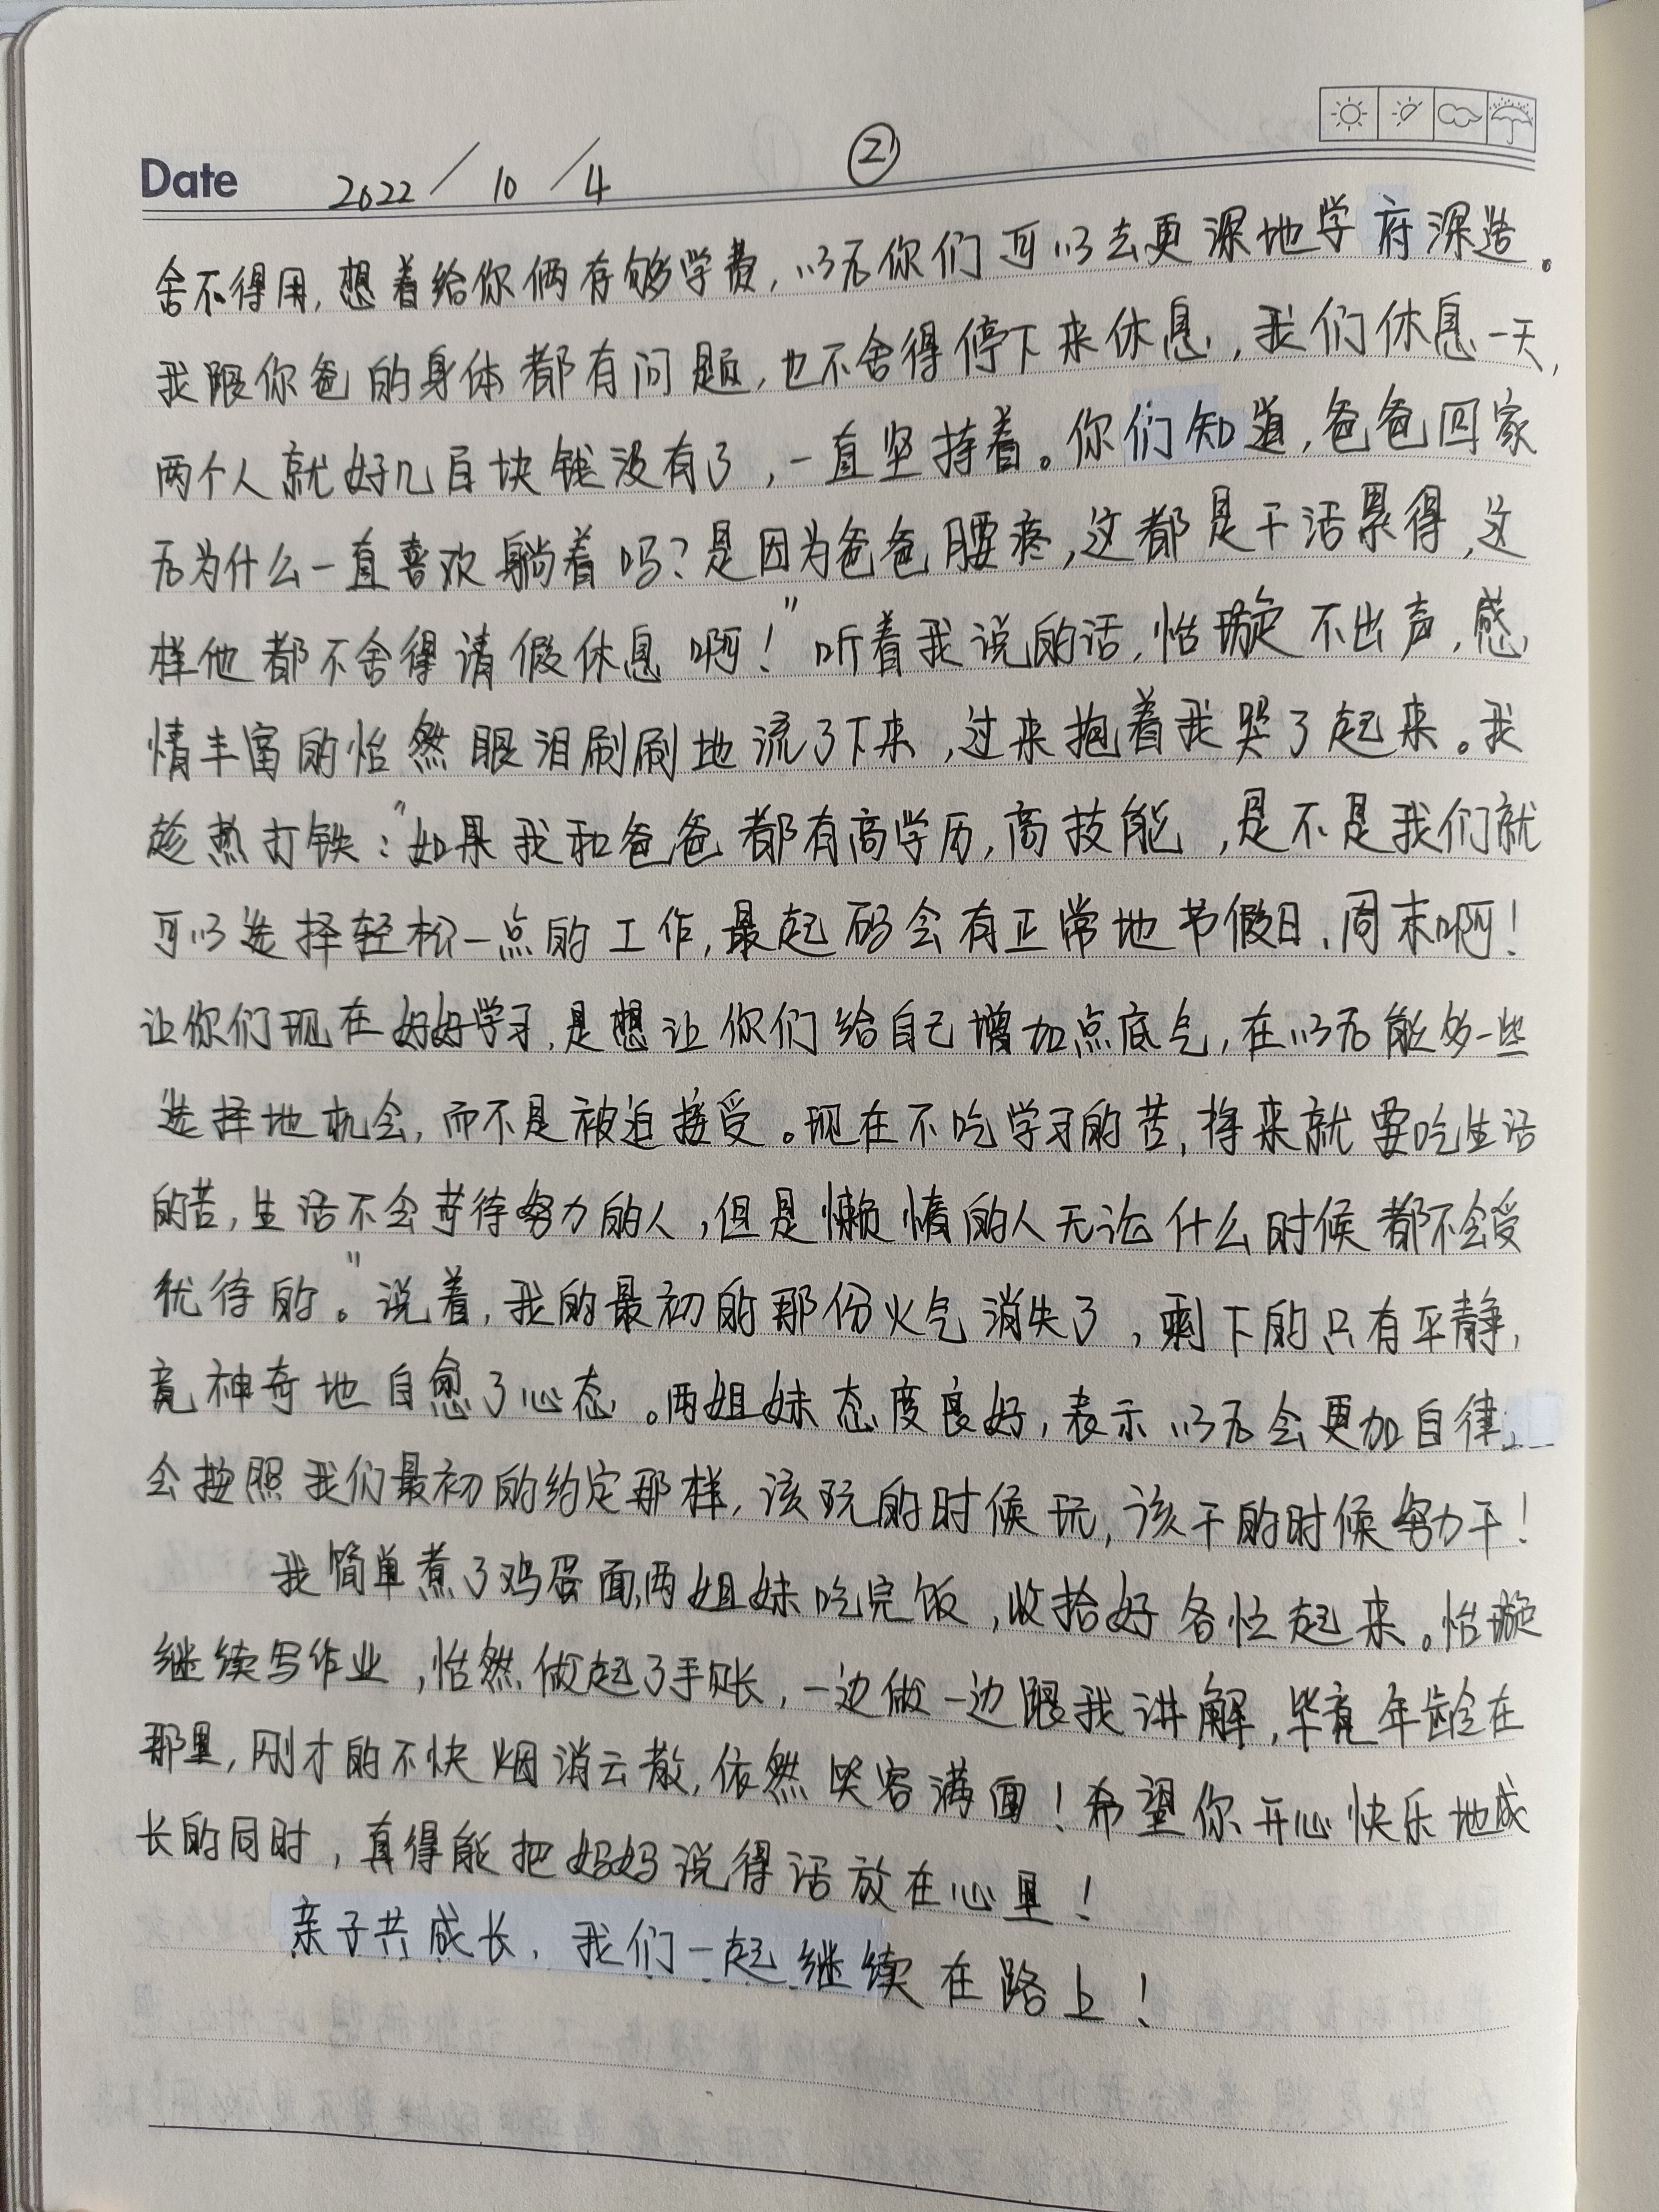 ②
Date 2022/10/4
舍不得用,想着给你俩存够学费,以后你们可以去更深地学府深造。
我跟你爸的身体都有问题,也不舍得停下来休息,我们休息一天,
两个人就好几百块钱没有了,一直坚持着。你们知道,爸爸回家
后为什么一直喜欢躺着吗?是因为爸爸腰疼,这都是干活累得,这
样他都不舍得请假休息啊!"听着我说的话,怡璇不出声,感
情丰富的怡然眼泪刷刷地流了下来,过来抱着我哭了起来。我
趁热打铁:"如果我和爸爸都有高学历,高技能,是不是我们就
可以选择轻松一点的工作,最起码会有正常地节假日、周末啊!
让你们现在好好学习,是想让你们给自己增加点底气,在以后能多一些
选择地机会,而不是被迫接受。现在不吃学习的苦,将来就要吃生活
的苦,生活不会苛待努力的人,但是懒惰的人无论什么时候都不会受
优待的。"说着,我的最初的那份火气消失了,剩下的只有平静,
竟神奇地自愈了心态。两姐妹态度良好,表示以后会更加自律,
会按照我们最初的约定那样,该玩的时候玩,该干的时候努力干!
我简单煮了鸡蛋面,两姐妹吃完饭,收拾好各忙起来。怡璇
继续写作业,怡然做起了手账,一边做一边跟我讲解,毕竟年龄在
那里,刚才的不快烟消云散,依然笑容满面!希望你开心快乐地成
长的同时,真得能把妈妈说得话放在心里!
亲子共成长,我们一起继续在路上!